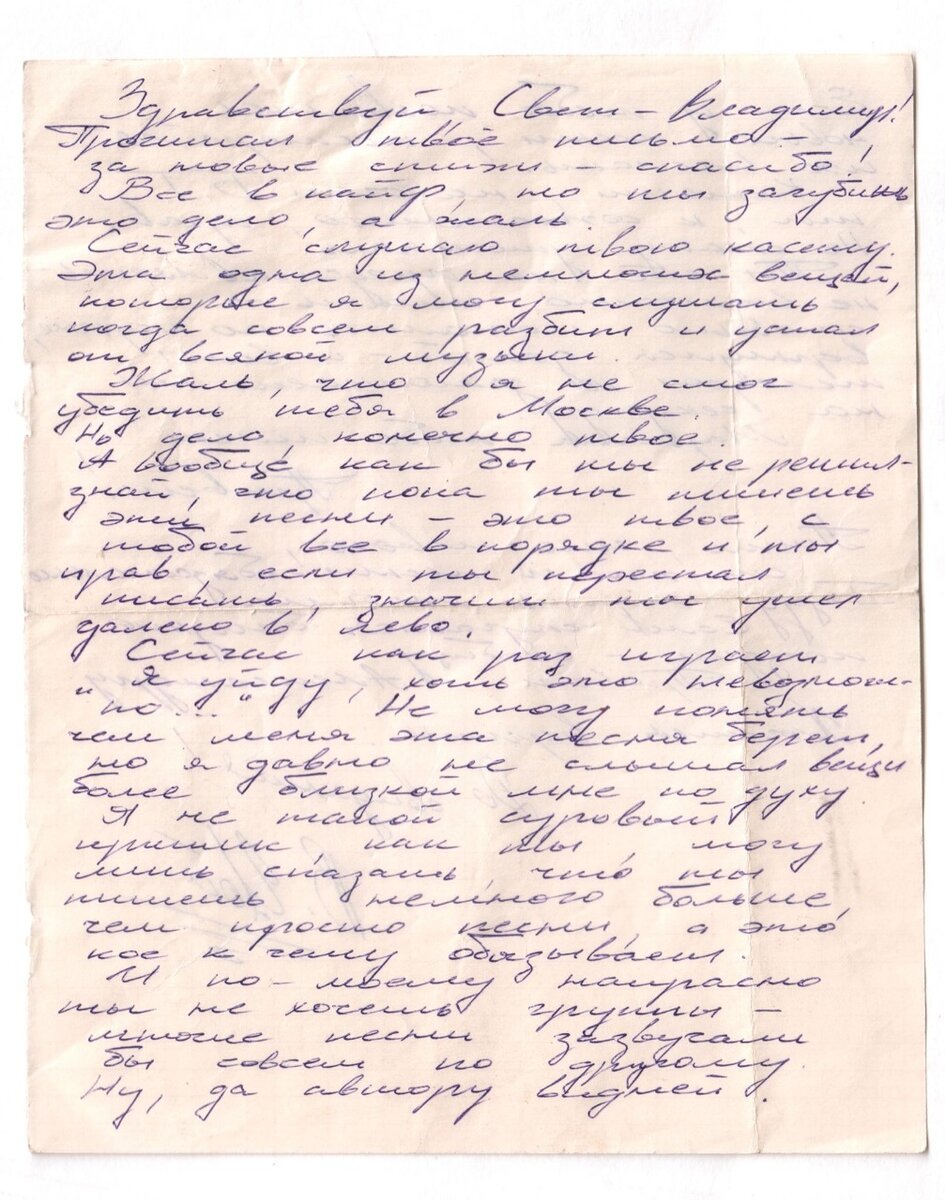 Здравствуй, Свет-Владимир!
Прочитал твоё письмо –
за новые стихи – спасибо!
Все в кайф, но ты загубишь
это дело, а жаль.
Сейчас слушаю твою кассету.
Эта одна из немногих вещей,
которые я могу слушать
когда совсем разбит и устал
от всякой музыки.
Жаль, что я не смог
убедить тебя в Москве.
Но дело, конечно твое.
А вообще, как бы ты не решил –
знай, что пока ты пишешь
эти песни – это твое, с
тобой все в порядке и ты
прав, если ты перестал
писать, значит ты ушел
далеко влево.
Сейчас как раз играет
"Я уйду, хоть это невозмож-
но..." Не могу понять
чем меня эта песня берет,
но я давно не слышал вещи
более близкой мне по духу
Я не такой суровый
критик как ты, могу
лишь сказать, что ты
пишешь немного больше,
чем просто песни, а это
кое к чему обязывает.
И по-моему напрасно
ты не хочешь группы –
многие песни зазвучали
бы совсем по другому.
Ну, да автору видней.